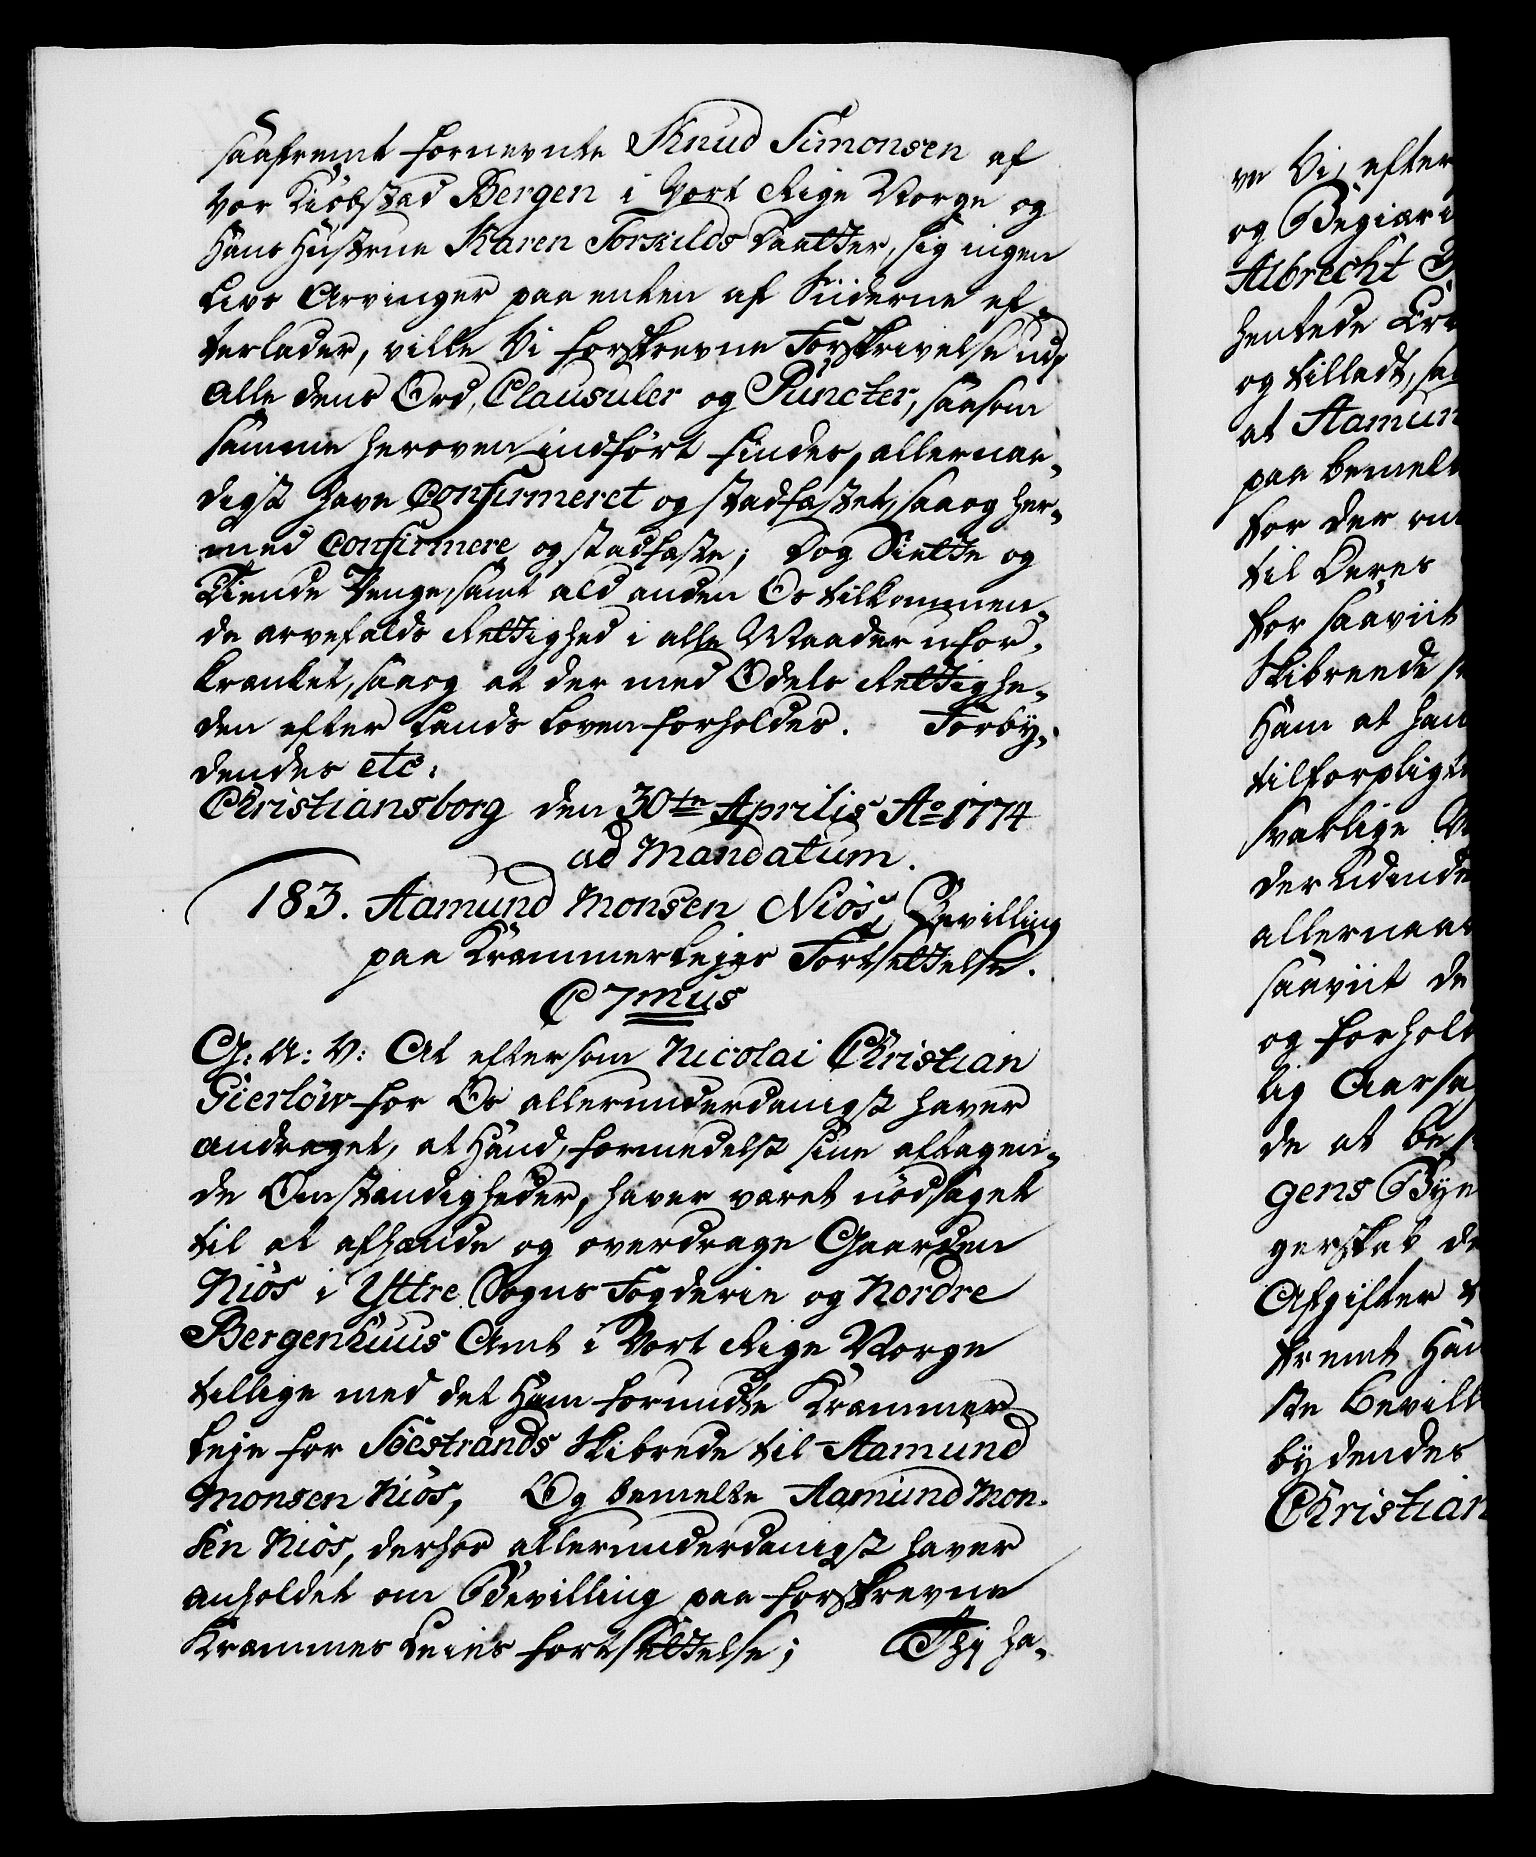 saafremt fornevnte Knud Simonsen af
Vor Kiöbstad Bergen i Vort Rige Norge og
Hans Hustrue Karen Torkilds Daatter, sig ingen
Livs Arvinger paa enten af Siiderne ef-
terlader, ville Vi forskrevne Forskrivelse udj
alle dens Ord, Clausuler og Puncter, saasom
samme heroven indført findes, allernaa-
digst have Confirmeret og stadfæstet, saa og her-
med Confirmere og stadfæste; Dog Siette og
Tiende Penge, samt ald anden Os tilkommen-
de arvefalds Rettighed i alle Maader ufor-
krænket, saa og at der med Odels Rettighe-
den efter Lands Loven forholdes. Forby-
dendes etc:
Christiansborg den 30te Aprilis Ao 1774
ad Mandatum.
183. Aamund Monsen Niös, Bevilling
paa Krammerlejes Fortsættelse.
C 7mus
G: A: V: At eftersom Nicolai Christian
Gierlöw for Os allerunderdanigst haver
andraget, at Hand, formedelst sine aftagen-
de Omstændigheder, haver været nödsaget
til at afhænde og overdrage Gaarden
Niös i Yttre Sogns Fogderie og Nordre
Bergenhuus Amt i Vort Rige Norge
tillige med det Ham forundte Krammer-
leje for Söestrands Skibrede til Aamund
Monsen Niös, Og bemelte Aamund Mon-
sen Niös, derhos allerunderdanigst haver
anholdet om Bevilling paa forskrevne
Krammer Leies fortsættelse; Thj ha-
ve Vi, efter
og Begiæri
Albrecht
hentede Er
og tilladt, sa
at Aamun
paa bemel
for der om
til Deres
for saaviit
Skibreede
Ham at han
tilforpligt
svarlige
der Lidende
allernaa
saaviit de
og forhol
lig Aarsa
de at be
gens Bye
gerskab de
Afgifter
fremt Ha
ste Bevill
bydendes
Christian